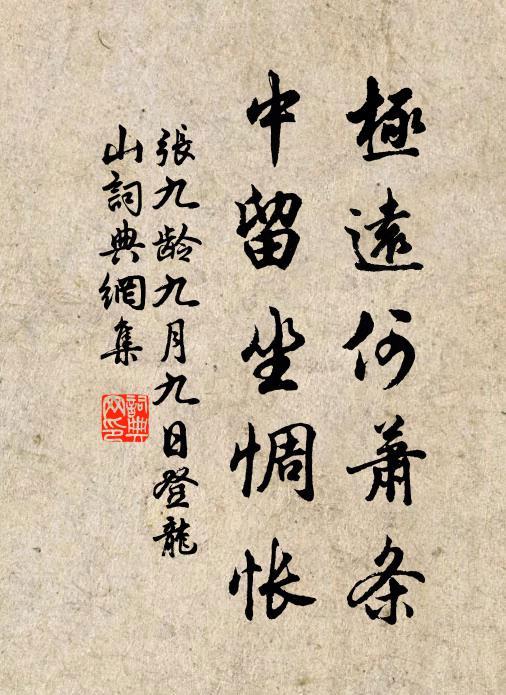 極遠何蕭条
中留坐惆怅
張九龄九月九日登龍
山詞典網集
詞典网印